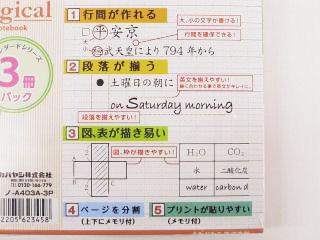 gical
otebook
ダードシリーズ
3冊
パック
1 行間が作れる
大、小の文字が書ける!
行間を確保できる!
大 小
平安京
武天皇により 794 年から
2 段落が揃う
● 土曜日の朝に
英文を揃えやすい!
on Saturday morning
段落を揃えやすい!
3 図、表が描き易い
図、枠が描きやすい!
2
2
H₂O CO₂
水 二酸化炭
water carbon d
4 ページを分割
(上下にメモリ付)
5 プリントが貼りやすい
(メモリ付)
カバヤシ株式会社
TEL0120-166-779
ノ-A403A-3P
2205 623458